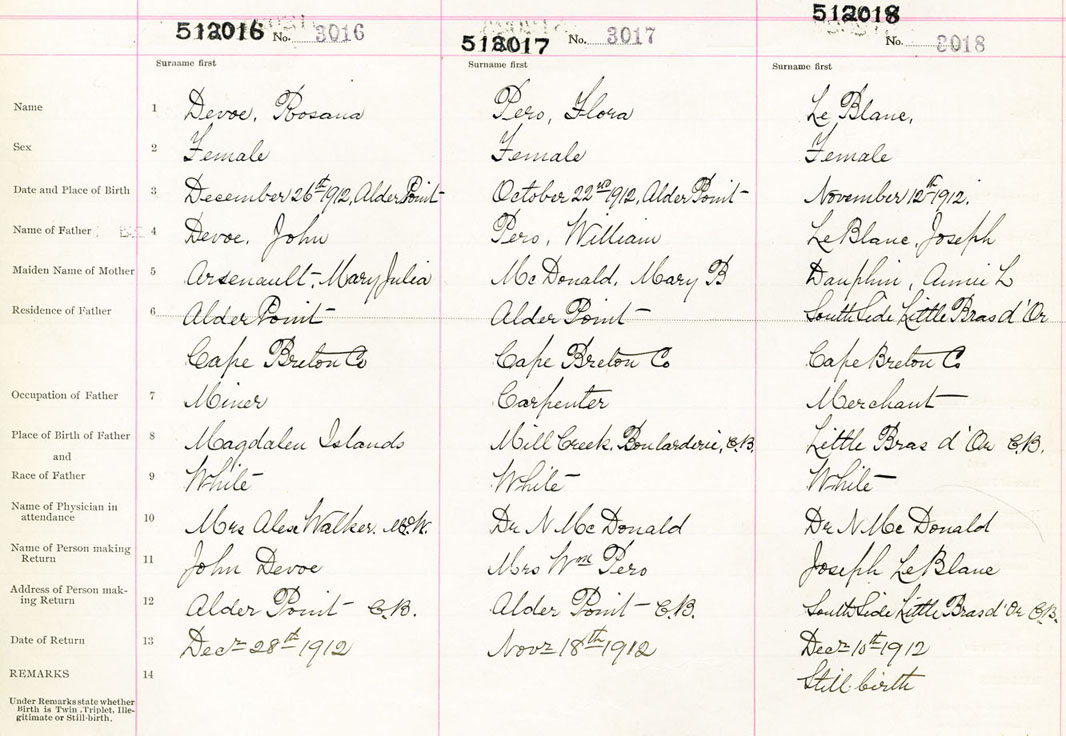 512016 No. 3016
512017 No. 3017
512018 No. 3018
Surname first Surname first Surname first
Name 1 Devoe, Rosana Pero, Flora Le Blanc,
Sex 2 Female Female Female
Date and Place of Birth 3 December 26th 1912, Alder Point October 22nd 1912, Alder Point November 12th 1912.
Name of Father 4 Devoe, John Pero, William LeBlanc, Joseph
Maiden Name of Mother 5 Arsenault, Mary Julia McDonald, Mary B Dauphin, Annie L
Residence of Father 6 Alder Point Alder Point South Side Little Bras d'Or
Cape Breton Co Cape Breton Co Cape Breton Co
Occupation of Father 7 Miner Carpenter Merchant
Place of Birth of Father 8 Magdalen Islands Mill Creek, Boularderie, C.B. Little Bras d'Or C.B.
and
Race of Father 9 White White White
Name of Physician in
attendance 10 Mrs Alex Walker. M.W. Dr N McDonald Dr N McDonald
Name of Person making
Return 11 John Devoe Mrs Wm Pero Joseph LeBlanc
Address of Person mak-
ing Return 12 Alder Point C.B. Alder Point C.B. South Side Little Bras d'Or C.B.
Date of Return 13 Decr 28th 1912 Novr 18th 1912 Decr 10th 1912
REMARKS 14 Still birth
Under Remarks state whether
Birth is Twin, Triplet, Ille-
gitimate or Still-birth.